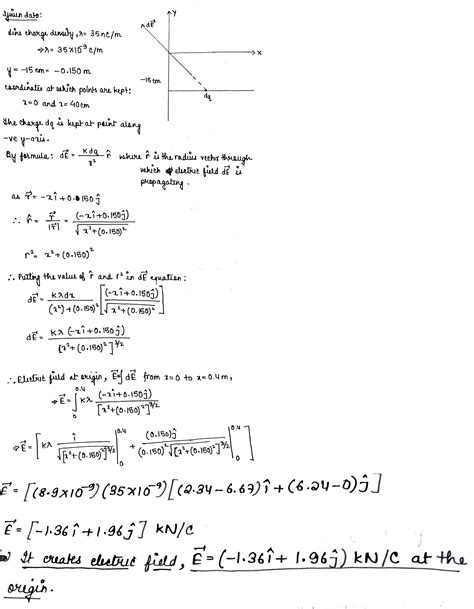 Given data:
line charge density, λ = 35 nc/m
⇒ λ = 35×10⁻⁹ c/m
y = -15 cm = -0.150 m
coordinates at which points are kept:
x=0 and x=40cm
The charge dq is kept at point along
-ve y-axis.
dE⃗
y
x
-15cm
dq
By formula: dE⃗ = K dq / r² r̂ where r̂ is the radius vector through
which electric field dE⃗ is
propagating.
as r⃗ = -xî + 0.150ĵ
∴ r̂ = r⃗/|r⃗| = (-xî + 0.150ĵ) / √(x² + (0.150)²)
r² = x² + (0.150)²
∴ Putting the value of r̂ and r² in dE⃗ equation:
dE⃗ = Kλdx / ((x²) + (0.150)²) [(-xî + 0.150ĵ) / √(x² + (0.150)²)]
dE⃗ = Kλ (-xî + 0.150ĵ) / [x² + (0.150)²]^3/2
∴ Electric field at origin, E⃗ = ∫ dE⃗ from x=0 to x=0.4m,
⇒ E⃗ = ∫₀^0.4 Kλ (-xî + 0.150ĵ) / [x² + (0.150)²]^3/2
⇒ E⃗ = [Kλ î / √[x² + (0.150)²]^3/2 |₀^0.4 + (0.150)ĵ / (0.150)² √[x² + (0.150)²]^3/2 |₀^0.4]
E⃗ = [(8.9×10⁻⁹)(35×10⁻⁹)[(2.34-6.67)î + (6.24-0)ĵ]
E⃗ = [-1.36î + 1.96ĵ] KN/C
It creates electric field, E⃗ = (-1.36î + 1.96ĵ) KN/C at the
origin.